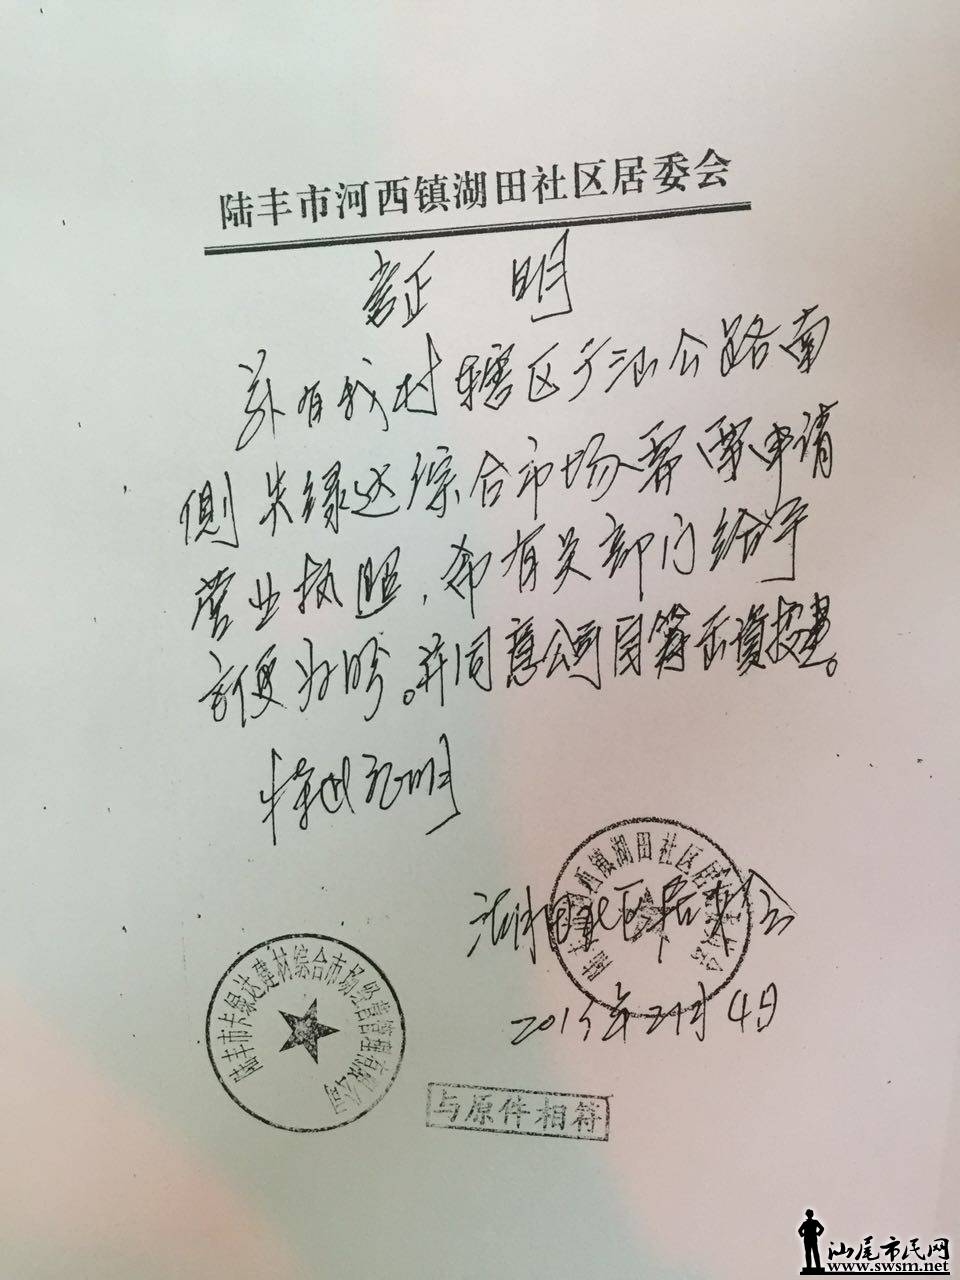 陆丰市河西镇湖田社区居委会
证 明
兹有我村辖区广汕公路南
侧 绿达综合市场需要申请
营业执照，希有关部门给予
方便办 。并同意公司自筹 资投建。
特此证明
湖田社区居委会
2015年 月4日
西镇湖田社区居
陆丰市卡绿达建材综合市场经营管理有限公司
与原件相符
汕尾市民网
www.swsm.net